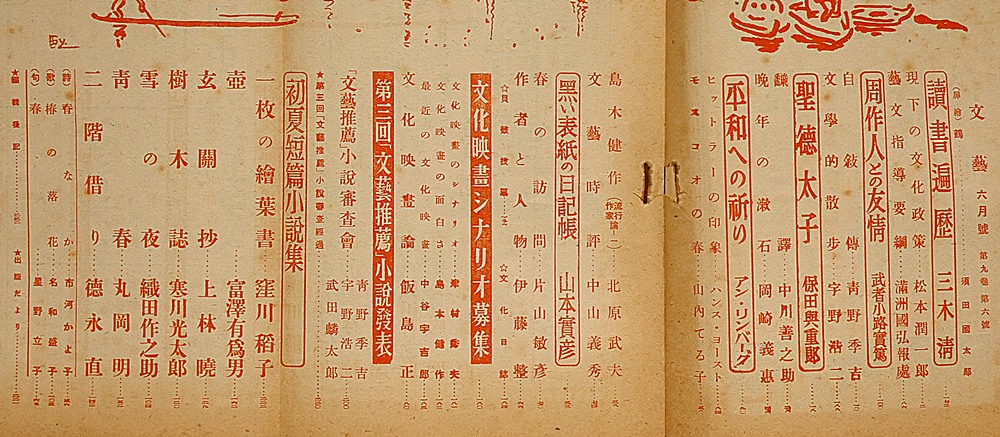 文藝 六月號 第九卷 第六號
須田國太郎
讀書遍歷 三木淸
現下の文化政策 松本潤一郎
藝文指導要綱 滿洲國弘報處
周作人との友情 武者小路實篤
自敍傳 靑野季吉
文學的散步 宇野浩二
聖德太子 保田與重郞
飜譯 中川善之助
晩年の漱石 岡崎義惠
平和への祈り アン・リンバーグ
ヒットラーの印象 ハンス・ヨースト
モスコオの春 山内てる子
島木健作(流行作家論二) 北原武夫
文藝時評 中山義秀
黑い表紙の日記帳 山本實彥
春の訪問 片山敏彥
作者と人物 伊藤整
文化映畫シナリオ募集
文化映畫のシナリオ 津村秀夫
文化映畫の面白さ 島本健作
最近の文化映畫 中谷宇吉郎
文化映畫論 飯島正
第三回「文藝推薦」小說發表
「文藝推薦」小說審査會 靑野季吉 宇野浩二 武田麟太郎
★第三回「文藝推薦」小說審査經過
初夏短篇小說集
一枚の繪葉書 窪川稻子
壺 富澤有爲男
玄關抄 上林曉
樹木誌 寒川光太郎
雪の夜 織田作之助
靑春 丸岡明
二階借り 德永直
(詩)春な落か 市河かよ子
(歌)椿の花 名和盛子
(句)春 星野立子
★編輯後記
★出版だより